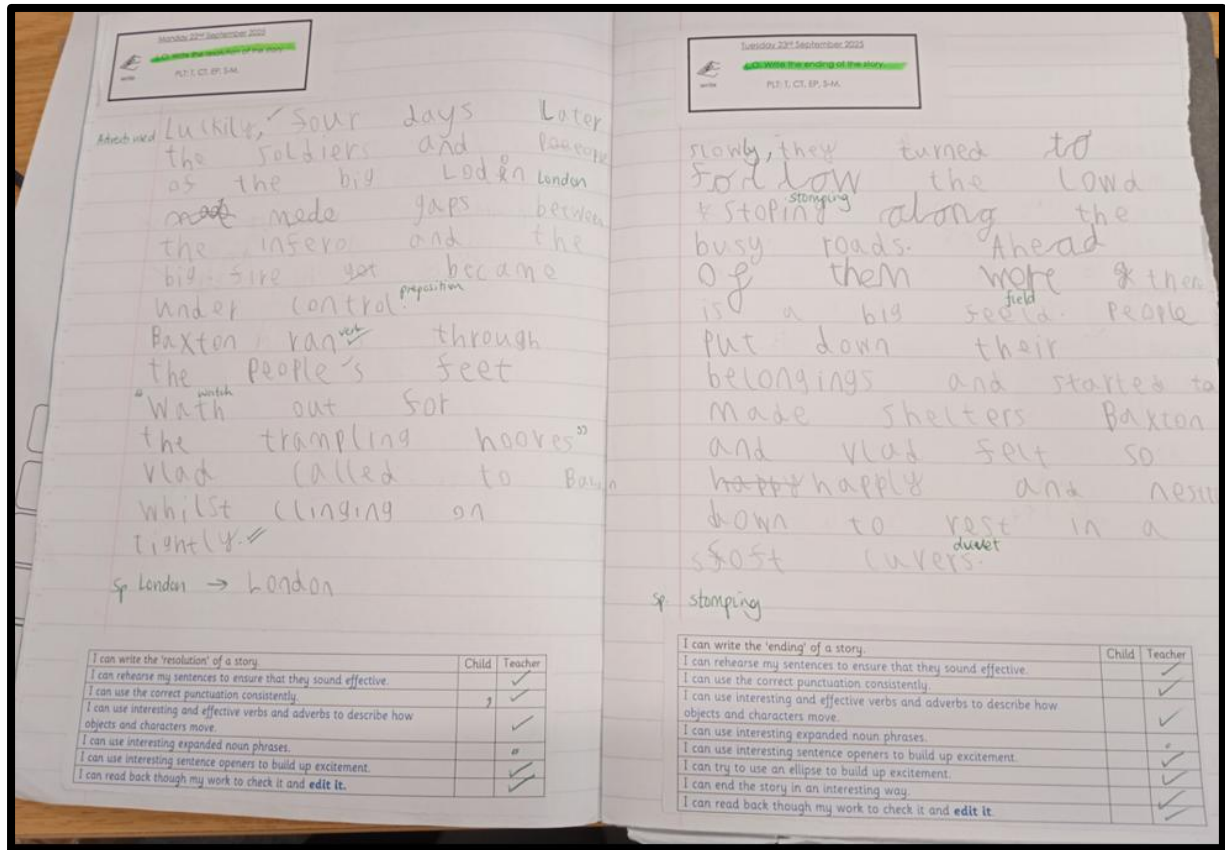 Monday 22nd September 2025
L.O: Write the resolution of the story
write
PLT: T, CT, EP, S-M,
Adverb used
Luckily, Sour days Later
the soldiers and
of the big London
made gaps between
the infero and the
big fire got became
under control.
preposition
Baxton ran verb through
the people's feet
watch
"Wath out for
the trampling hooves"
vlad called to
whilst clinging on
tightly.
Sp London → London
I can write the 'resolution' of a story. Child Teacher
I can rehearse my sentences to ensure that they sound effective.
I can use the correct punctuation consistently. ,
I can use interesting and effective verbs and adverbs to describe how
objects and characters move.
I can use interesting expanded noun phrases.
I can use interesting sentence openers to build up excitement.
I can read back though my work to check it and edit it.
Tuesday 23rd September 2025
L.O: Write the ending of the story
write
PLT: T, CT, EP, S-M,
slowly, they turned to
the lowd
stomping
stoping along the
busy roads. Ahead
of them were
field
is a big feeld. People
put down their
belongings and started to
made shelters Baxton
and vlad felt so
happy happly and
down to rest in a
duvet
soft cuvers.
sp. stomping
I can write the 'ending' of a story. Child Teacher
I can rehearse my sentences to ensure that they sound effective.
I can use the correct punctuation consistently.
I can use interesting and effective verbs and adverbs to describe how
objects and characters move.
I can use interesting expanded noun phrases.
I can use interesting sentence openers to build up excitement.
I can try to use an ellipse to build up excitement.
I can end the story in an interesting way.
I can read back though my work to check it and edit it.